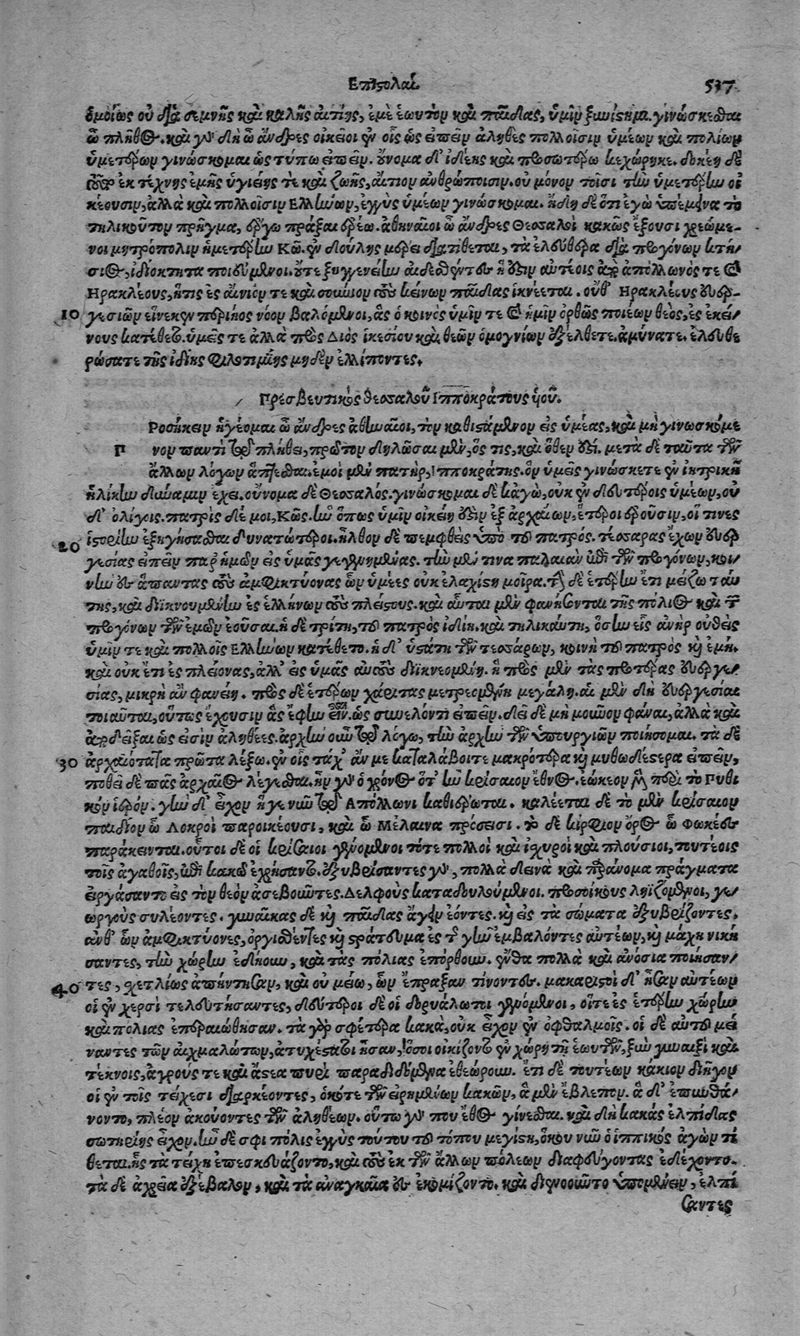 Επιστολαί. 537
ὁμοίως οὐ διὰ σεμνῆς καὶ καλῆς αἰτίης, ἐμὲ ἑωυτὸν καὶ παῖδας, ὑμῖν ξυνίστημι. γινώσκεσθαι
ὦ πλῆθος. καὶ γὰρ δὴ ὦ ἄνδρες οἰκεῖοι ἐν οἷς ὡς εἰπεῖν ἀληθὲς πολλοῖσιν ὑμέων καὶ πολίων
ὑμετέρων γινώσκομαι ὡς τύπῳ εἰπεῖν. ὄνομα δ' ἰδίης καὶ προσωτέρω κεχώρηκε. δοκέη δὲ
τοῦτον ἐκ τέχνης ἐμῆς ὑγιείης τε καὶ ζωῆς, αἴτιον ἀνθρώποισιν. οὐ μόνον τοῖσι τὴν ὑμετέρην οἰ
κέουσιν, ἀλλὰ καὶ πολλοῖσιν Ἑλλήνων, ἐγγὺς ὑμέων γινώσκομαι. ἤδη δὲ ὅτι ἐγὼ ὑπέμεινα τὸ
τηλικοῦτον πρῆγμα, ἔργῳ πρᾶξαι ἐρέω. ἀθηναῖοι ὦ ἄνδρες Θεσσαλοὶ κακῶς ἕξουσι χρεώμε-
νοι μητρόπολιν ἡμετέρην Κῶ. ἐν δούλης μέρει διατίθεται, τὰ ἐλεύθερα διὰ προγόνων κτή-
σιος, ἰδιόκτητα ποιεύμενοι. οὔτε ξυγγενείην αἰδεσθέντες ἢ ἔστιν αὐτέοις ἀπ' ἀπόλλωνός τε καὶ
Ἡρακλέους, ἥτις ἐς αἴνιόν τε καὶ σούνιον τοὺς κείνων παῖδας ἱκνέεται. οὔθ' Ἡρακλέους εὐερ-
10 γεσιῶν εἵνεκεν περὶ πρὸς νόον βαλόμενοι, ἃς ὁ κοινὸς ὑμῖν τε καὶ ἡμῖν ὀρθῶς ποιέων θεὸς, ἐς ἐκεί-
νους κατέθετο. ὑμεῖς τε ἀλλὰ πρὸς Διὸς ἱκεσίου καὶ θεῶν ὁμογνίων ἐξέλθετε. ἀμύνατε. ἐλευθε
ρώσατε τῆς ἰδίης φιλοτιμίης μηδὲν ἐλλίποντες.
Πρεσβευτικὸς Θεσσαλοῦ Ἱπποκράτους υἱοῦ.
Ροσήκειν ἡγέομαι ὦ ἄνδρες ἀθηναῖοι, τὸν καθιστάμενον εἰς ὑμέας, καὶ μὴ γινωσκόμε
Π νον παντὶ τῷ πλήθει, πρῶτον δηλῶσαι μὲν, ὅς τις, καὶ ὅθεν ἐστί. μετὰ δὲ ταῦτα τῶν
ἄλλων λόγων ἅπτεσθαι. ἐμοὶ μὲν πατὴρ, Ἱπποκράτης. ὃν ὑμεῖς γινώσκετε ἐν ἰητρικῇ
ἡλίκην δύναμιν ἔχει. οὔνομα δὲ Θεσσαλός. γινώσκομαι δὲ κἀγὼ, οὐκ ἐν δευτέροις ὑμέων, οὐ
δ' ὀλίγοις. πατρὶς δέ μοι, Κῶς. ἣν ὅπως ὑμῖν οἰκείη ἐστὶν ἐξ ἀρχαίων, ἕτεροι ἐροῦσιν, οἵ τινες
20 ἱστορίην ἐξηγήσασθαι δυνατώτεροι. ἦλθον δὲ πεμφθεὶς ὑπὸ τοῦ πατρὸς. τέσσαρας ἔχων εὐερ
γεσίας εἰπεῖν παρ' ἡμῶν εἰς ὑμᾶς γεγενημένας. τὴν μέν τινα παλαιὰν ἐπὶ τῶν προγόνων, κοι-
νὴν ἐς ἅπαντας τοὺς ἀμφικτύονας ὧν ὑμέες οὐκ ἐλαχίστη μοῖρα. τὴν δὲ ἑτέρην ἔτι μείζω ταύ
της, καὶ διϊκνουμένην ἐς ἑλλήνων τοὺς πλείστους. καὶ αὗται μὲν φανήσονται τῆς πόλιος καὶ τῶν
προγόνων τῶν ἐμῶν ἐοῦσαι. ἡ δὲ τρίτη, τοῦ πατρὸς ἰδίη. καὶ τηλικαύτη, ὅσην εἷς ἀνὴρ οὐθεὶς
ὑμῖν τε καὶ πολλοῖς Ἑλλήνων κατέθετο. ἡ δ' ὑστάτη τῶν τεσσάρων, κοινὴ τοῦ πατρὸς κὴ ἐμή.
καὶ οὐκ ἔτι ἐς πλείονας, ἀλλ' ἐς ὑμᾶς αὐτοὺς διϊκνεομένη. ἡ πρὸς μὲν τὰς προτέρας εὐεργε-
σίας, μικρὴ ἂν φανείη. πρὸς δὲ ἑτέρων χάριτας μετρεομένη μεγάλη. αἱ μὲν δὴ εὐεργεσίαι
τοιαῦται, οὕτως ἔχουσιν ἃς ἔφην εἶναι. ὡς συνελόντι εἰπεῖν. δεῖ δὲ μὴ μοῦνον φάναι, ἀλλὰ καὶ
ἀποδεῖξαι ὡς εἰσὶν ἀληθέες. ἀρχὴν οὖν τῷ λόγῳ, τὴν ἀρχὴν τῶν ὑπουργιῶν ποιήσομαι. τὰ δὲ
30 ἀρχαιότατα πρῶτα λέξω. ἐν οἷς τάχ' ἄν με καταλάβοιτε μακρότερα κὴ μυθωδέστερα εἰπεῖν,
ποθεῖ δὲ πᾶς ἀρχαῖος λέγεσθαι. ἦν γὰρ ὁ χρόνος ὅτ' ἦν κρισαῖον ἔθνος. ᾤκεον γὰρ περὶ τὸ Πυθι
κὸν ἱερόν. γῆν δ' εἶχον ἣ γε νῦν τῷ Ἀπόλλωνι καθιέρωται. καλέεται δὲ τὸ μὲν κρισαῖον
παιδίον ὦ Λοκροὶ παροικέουσι, καὶ ὦ Μέλαινα πρόσεισι. τὸ δὲ κίρφιον ὄρος ὦ Φωκέες
παράκεινται. οὗτοι δὲ οἱ κρισαῖοι γενόμενοι τότε πολλοὶ καὶ ἰσχυροὶ καὶ πλούσιοι, τουτέοις
τοῖς ἀγαθοῖς, ἐπὶ κακῷ ἐχρήσαντο. ἐξυβρίσαντες γὰρ, πολλὰ δεινὰ καὶ παράνομα πράγματα
εἰργάσαντο ἐς τὸν θεὸν ἀσεβοῦντες. Δελφοὺς καταδουλούμενοι. προσοίκους ληϊζόμενοι, γε
ωργοὺς συλέοντες. γυναῖκας δὲ κὴ παῖδας ἀγινέοντες. κὴ εἰς τὰ σώματα ἐξυβρίζοντες.
ἀνθ' ὧν ἀμφικτύονες, ὀργισθέντες κὴ στράτευμα ἐς τὴν γῆν ἐμβαλόντες αὐτέων, κὴ μάχῃ νική
σαντες, τὴν χώρην ἐδῄουν, καὶ τὰς πόλιας ἐπόρθουν. ἔνθα πολλὰ καὶ ἀνόσια ποιήσαν-
40 τες, σχετλίως ἀπήντησαν, καὶ οὐ μείω, ὧν ἔπραξαν τίνοντες. μακαριστοὶ δ' ἦσαν αὐτέων
οἱ ἐν χερσὶ τελευτήσαντες, δεύτεροι δὲ οἱ δορυάλωτοι γενόμενοι, οἵτε ἐς ἑτέρην χώρην
καὶ πόλιας ἐπεραιώθησαν. τὰ γὰρ σφέτερα κακὰ, οὐκ εἶχον ἐν ὀφθαλμοῖς. οἱ δὲ αὐτοῦ μεί
ναντες τῶν αἰχμαλώτων, ἀτυχέστατοι ἦσαν, ὅσοι οἰκίζοντο ἐν χώρῃ τῇ ἑωυτῶν, ξὺν γυναιξὶ καὶ
τέκνοις, ἀγρούς τε καὶ ἄστεα πυρὶ παραδιδόμενα ἐθεώρουν. ἔτι δὲ τουτέων κάκιον διῆγον
οἱ ἐν τοῖς τείχεσι διαρκέοντες, ὁκότε τῶν εἰρημένων κακῶν, ἃ μὲν ἔβλεπον. ἃ δ' ἐπυνθά-
νοντο, πλέον ἀκούοντες τῶν ἀληθέων. οὕτω γάρ που ἔθος γίνεσθαι. καὶ δὴ κακὰς ἐλπίδας
σωτηρίης εἶχον. ἦν δὲ σφι πόλις ἐγγὺς τούτου τοῦ τόπου μεγίστη, ὅκου νῦν ὁ ἱππικὸς ἀγὼν τί
θεται. ἧς τὰ τείχη ἐπεσκευάζοντο, καὶ τοὺς ἐκ τῶν ἄλλων πόλεων διαφεύγοντας ἐδέχοντο.
τὰ δὲ ἀχρεῖα ἐξέβαλον, καὶ τὰ ἀναγκαῖα ἐς ἐκομίζοντο. καὶ διενοοῦντο ὑπομένειν, ἐλπί
σαντες